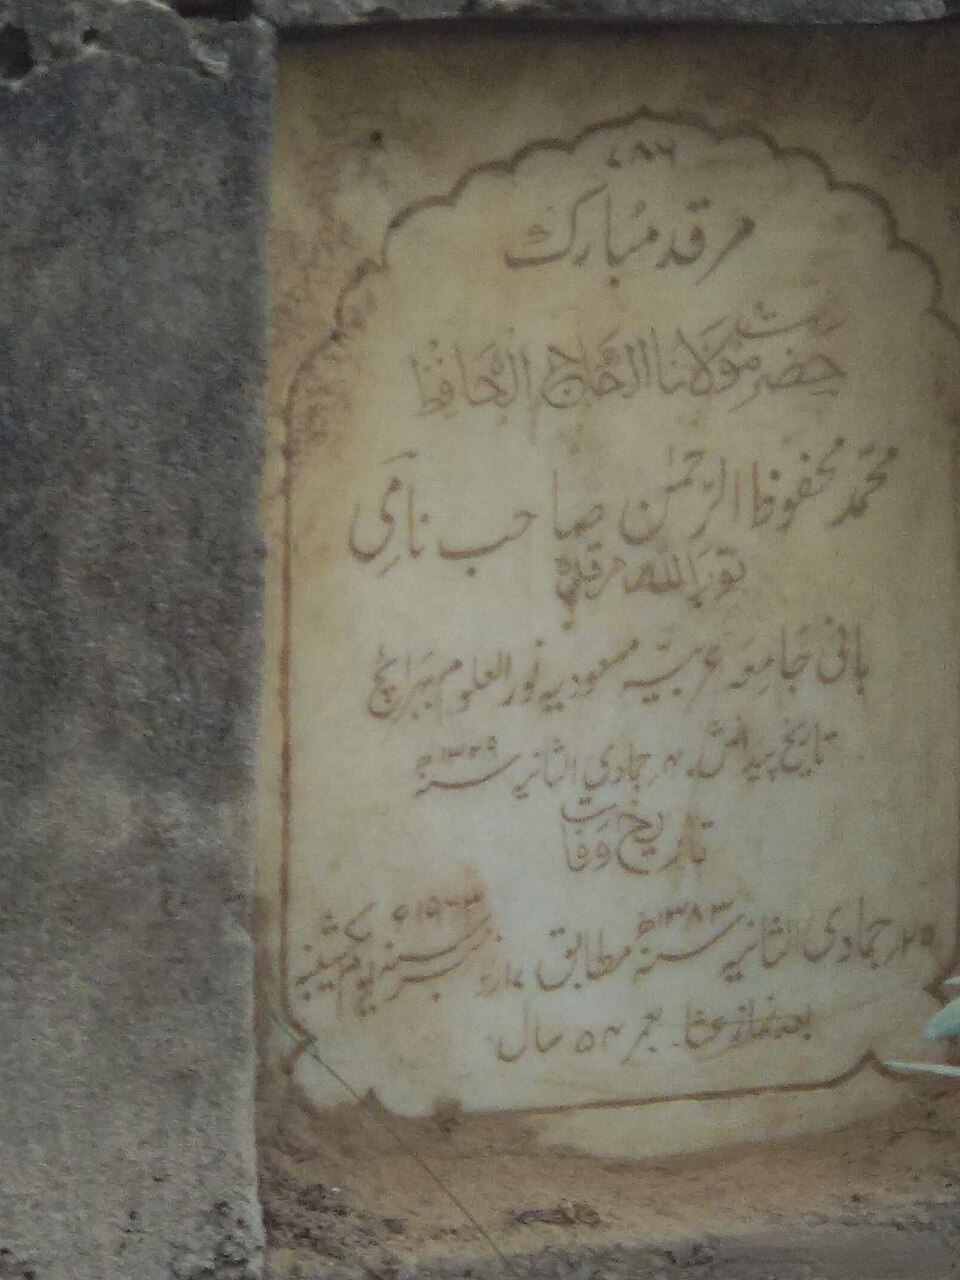 ۷۸۶
مرقد مبارک
حضرت مولانا الحاج الحافظ
محمد محفوظ الرحمٰن صاحب نامی
نور اللہ مرقدہ
بانی جامعہ عربیہ مسعودیہ نور العلوم بہرائچ
تاریخ پیدائش ۴؍ جمادی الثانیہ ۱۳۲۹ سنہ
تاریخ وفات
جمادی الثانیہ سنہ ۱۳۸۳ھ مطابق ۱۷؍ نومبر سنہ ۱۹۶۳ء یوم یکشنبہ
بعد نماز عشاء بعمر ۵۴ سال